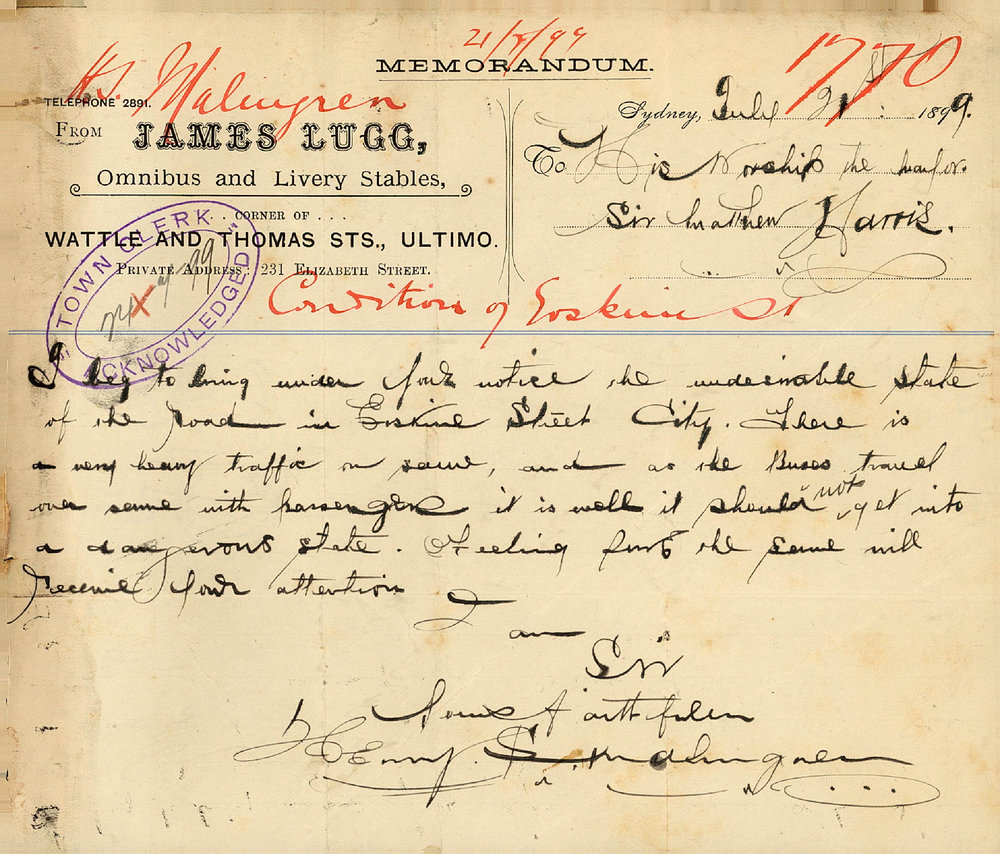 21/7/99
MEMORANDUM.
H.S. Malmgren
1770
TELEPHONE 2891.
FROM JAMES LUGG,
Omnibus and Livery Stables,
. . CORNER OF . . .
WATTLE AND THOMAS STS., ULTIMO.
PRIVATE ADDRESS: 231 ELIZABETH STREET.
Sydney, July 21st : 1899.
To His Worship the Mayor.
Sir Mathew Harris.
TOWN CLERK
24 99
ACKNOWLEDGED
Condition of Erskine St
I beg to bring under your notice the undesirable state
of the road in Erskine Street City. There is
a very heavy traffic on same, and as the Buses travel
over same with passengers it is well it should not get into
a dangerous state. Feeling sure the same will
receive your attention
I am
Sir
Yours faithfully
Henry. S. Malmgren